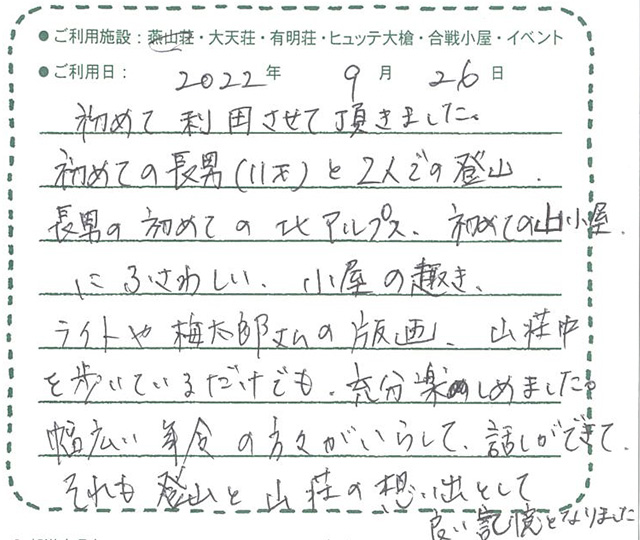 ●ご利用施設：燕山荘・大天荘・有明荘・ヒュッテ大槍・合戦小屋・イベント
●ご利用日： 2022年 9月 26日
初めて利用させて頂きました。
初めての長男(11才)と2人での登山.
長男の初めての北アルプス、初めての山小屋.
にふさわしい、小屋の趣き、
ライトや梅太郎さんの版画、山荘中
を歩いているだけでも、充分楽しめました。
幅広い年令の方々がいらして、話しができて、
それも登山と山荘の想い出として
良い記憶となりました